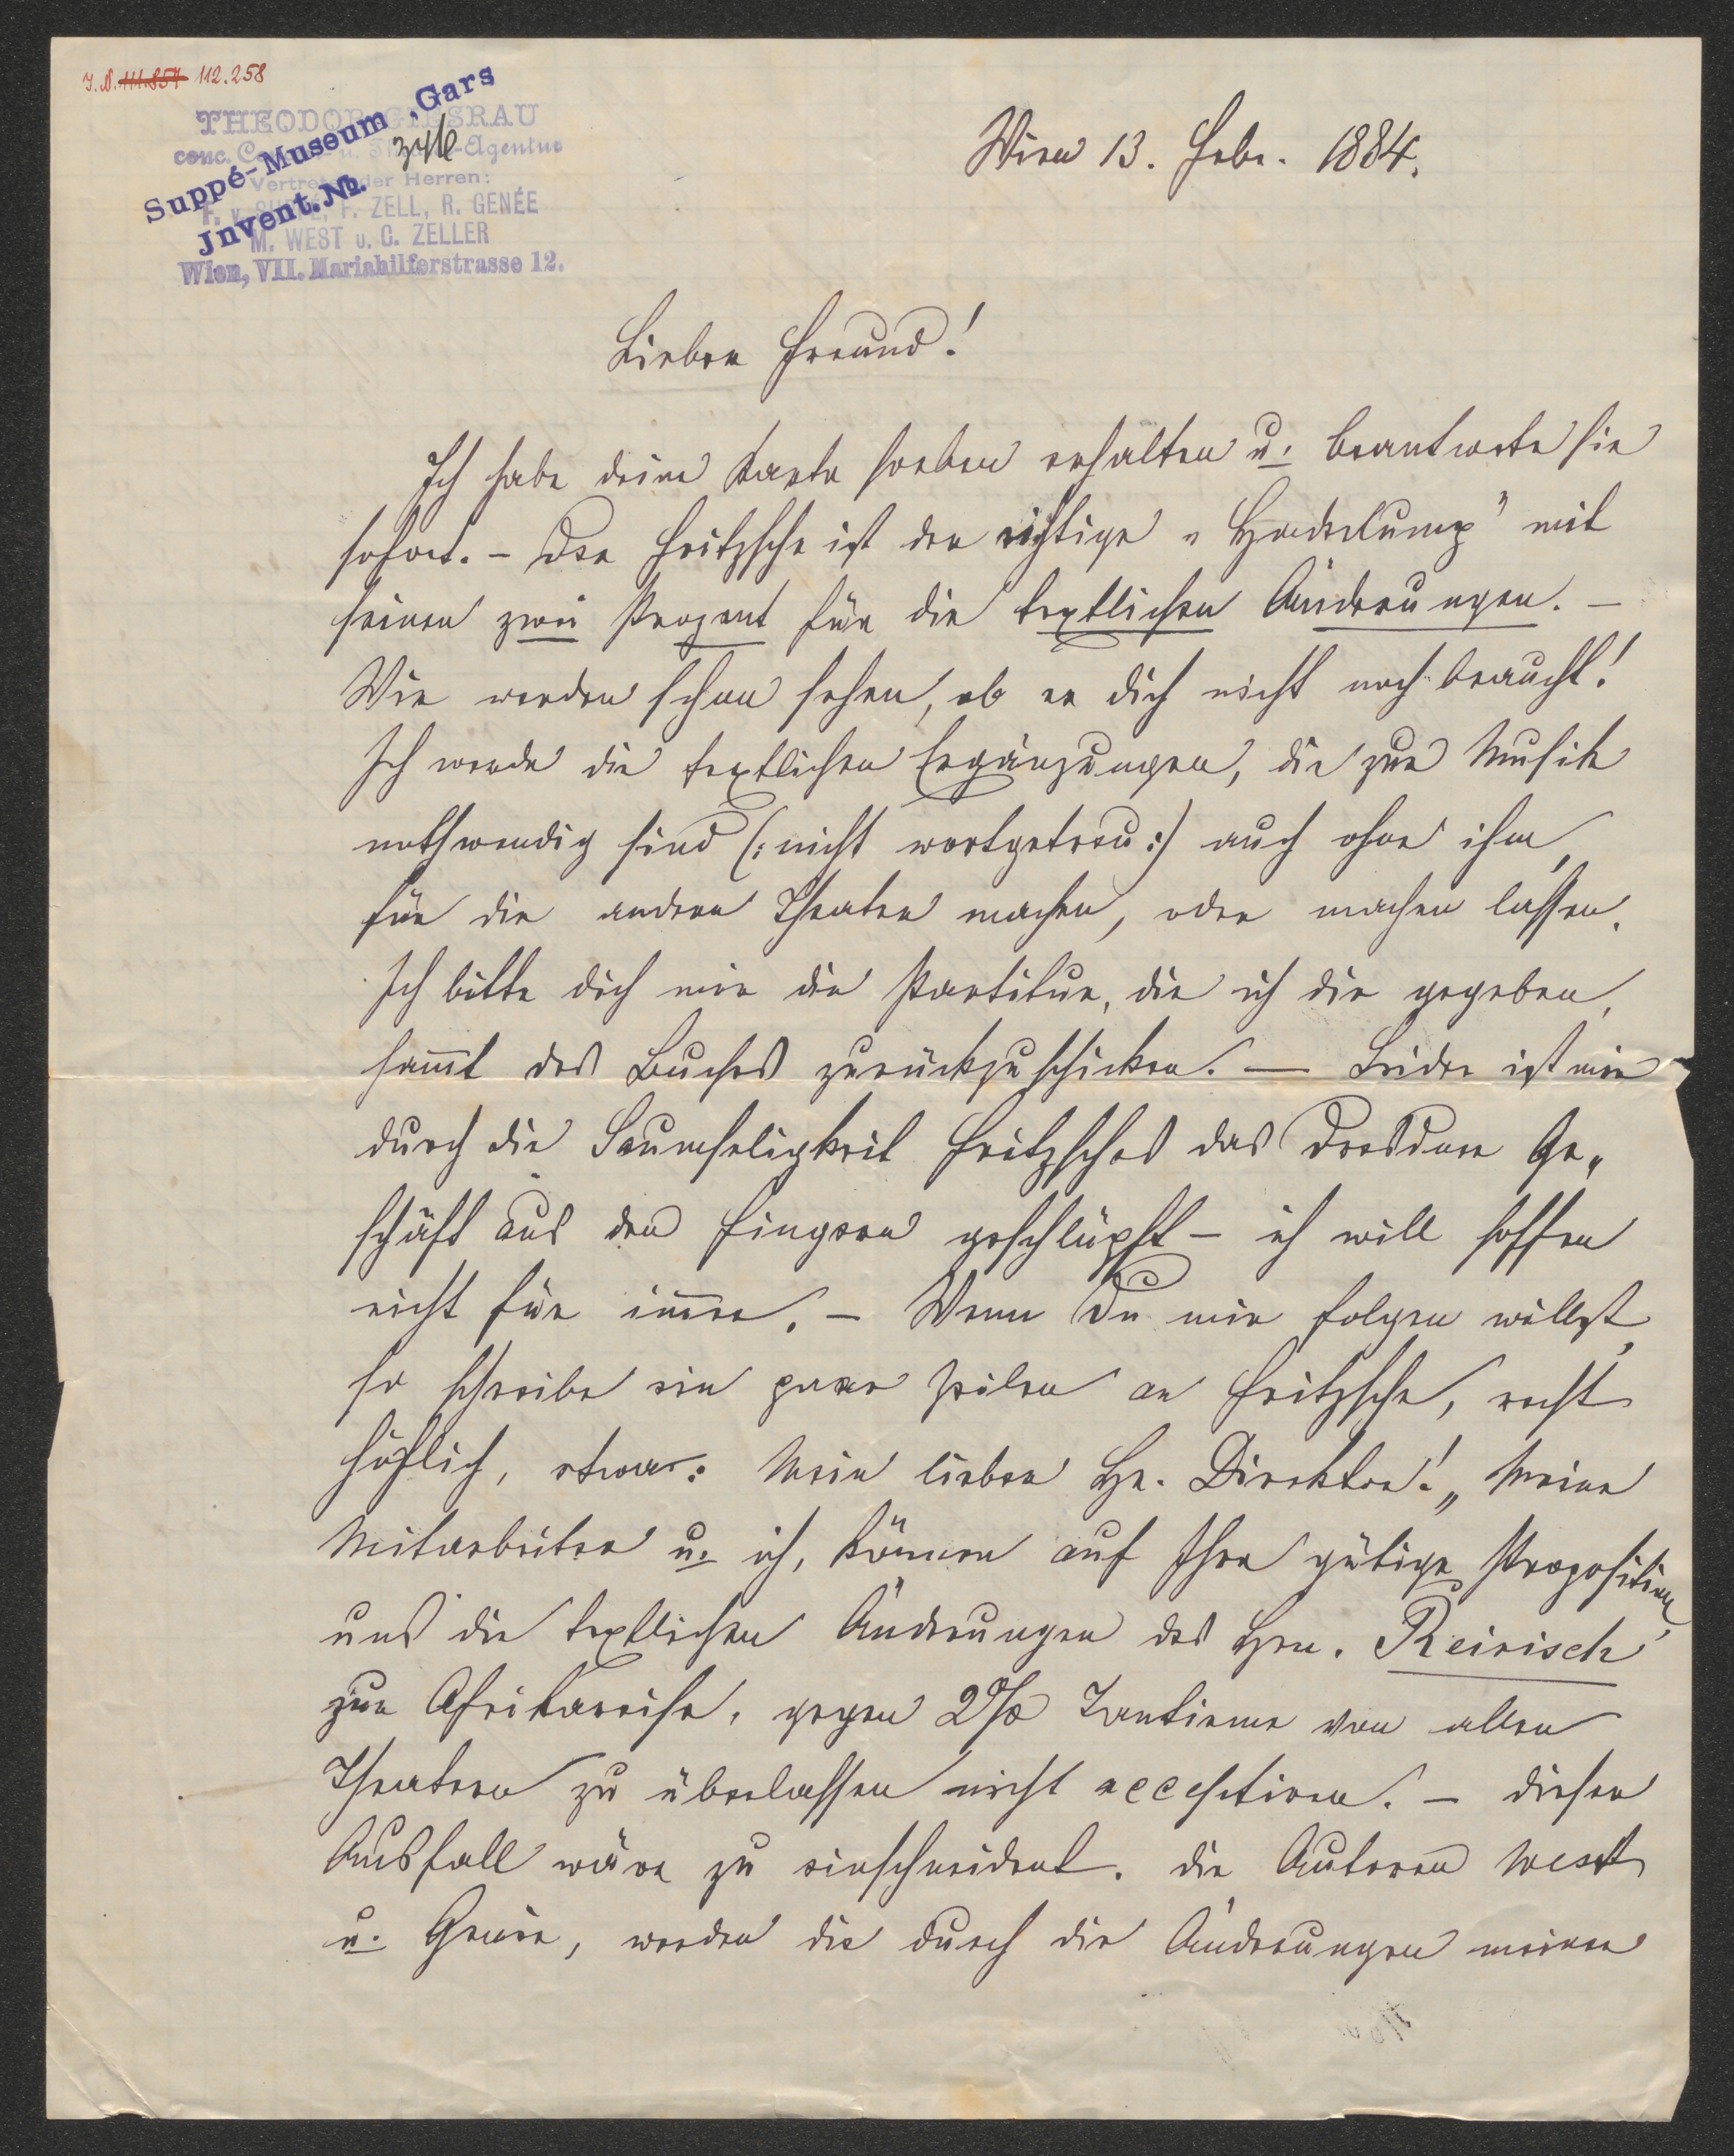 J. N. 111.857 112.258
THEODOR GIESRAU
conc. Concert- u. Theater-Agentur
Vertreter der Herren:
F. v. SUPPÉ, F. ZELL, R. GENÉE
M. WEST u. C. ZELLER
Wien, VII. Mariahilferstrasse 12.
Suppé-Museum, Gars
Jnvent. No.
Wien 13. Febr. 1884.
Lieber Freund!
Ich habe deine Karte soeben erhalten u. beantworte sie
sofort. – Der Fritzsche ist der richtige „Haderlump" mit
seinen zwei Prozent für die textlichen Änderungen. –
Wir werden schon sehen, ob er dich nicht noch braucht!
Ich werde die textlichen Ergänzungen, die zur Musik
nothwendig sind (: nicht wortgetreu :) auch ohne ihm,
für die andern Theater machen, oder machen lassen.
Ich bitte dich mir die Partitur, die ich dir gegeben,
sammt des Buches zurückzuschicken. — Leider ist mir
durch die Saumseligkeit Fritzsches das Dresdner Ge„
schäft aus den Fingern geschlüpft – ich will hoffen
nicht für immer. – Wenn Du mir folgen willst,
so schreibe ein paar Zeilen an Fritzsche, recht
höflich, etwa: Mein lieber Hr. Direktor! „Meine
Mitarbeiter u. ich, können auf Ihre gütige Proposition,
uns die textlichen Änderungen des Hrn. Reirisch
zur Afrikareise, gegen 2% Tantieme von allen
Theatern zu überlassen nicht acceptiren. – dieser
Ausfall wäre zu einschneident. die Autoren West
u. Genée, werden die durch die Änderungen meiner